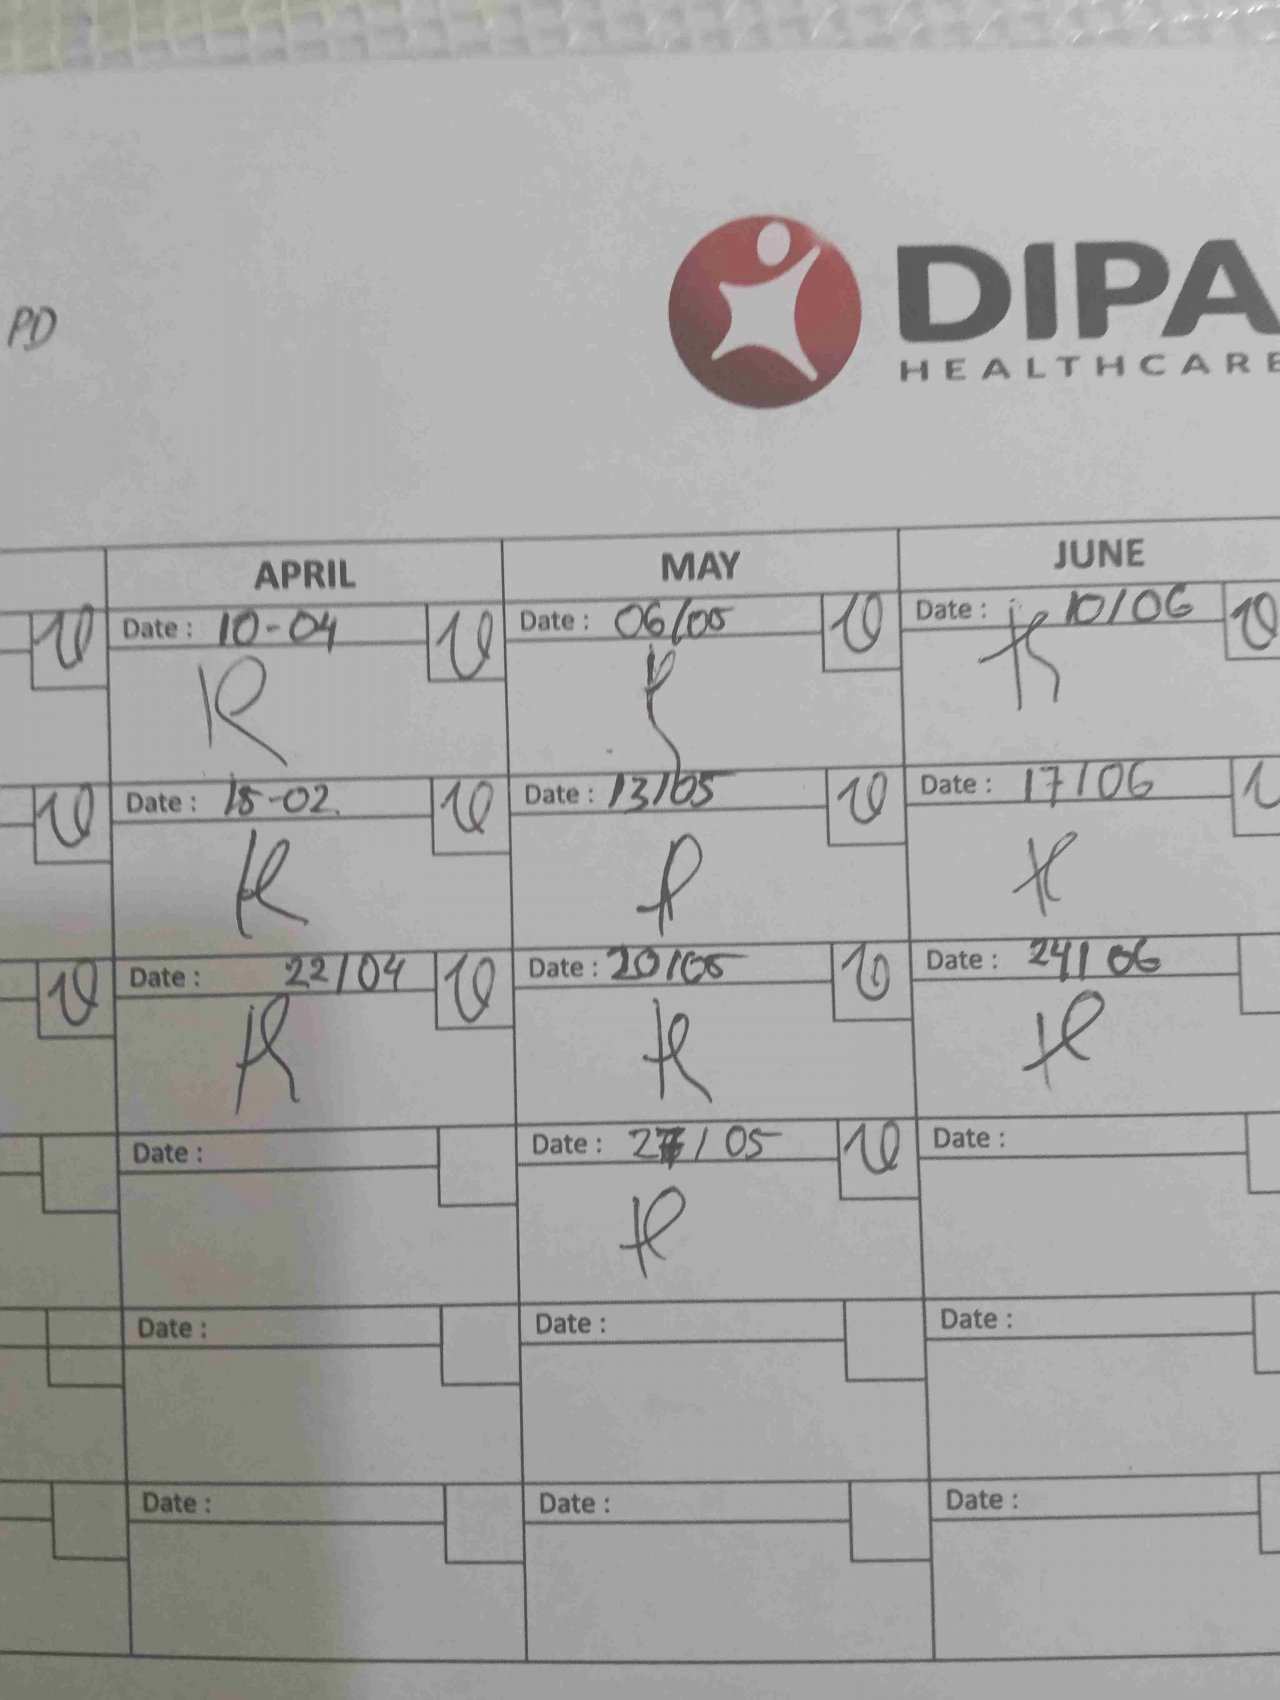 PD
DIPA
HEALTHCARE
APRIL MAY JUNE
Date : 10-04 Date : 06/05 Date : 10/06
Date : 15-02. Date : 13/05 Date : 17/06
Date : 22/04 Date : 20/05 Date : 24/06
Date : Date : 27/05 Date :
Date : Date : Date :
Date : Date : Date :